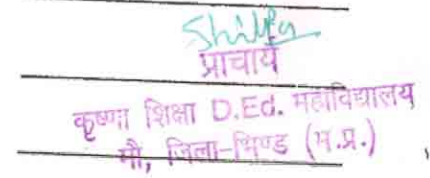 Shilpa
प्राचार्य
कृष्णा शिक्षा D.Ed. महाविद्यालय
मौ, जिला-भिण्ड (म.प्र.)